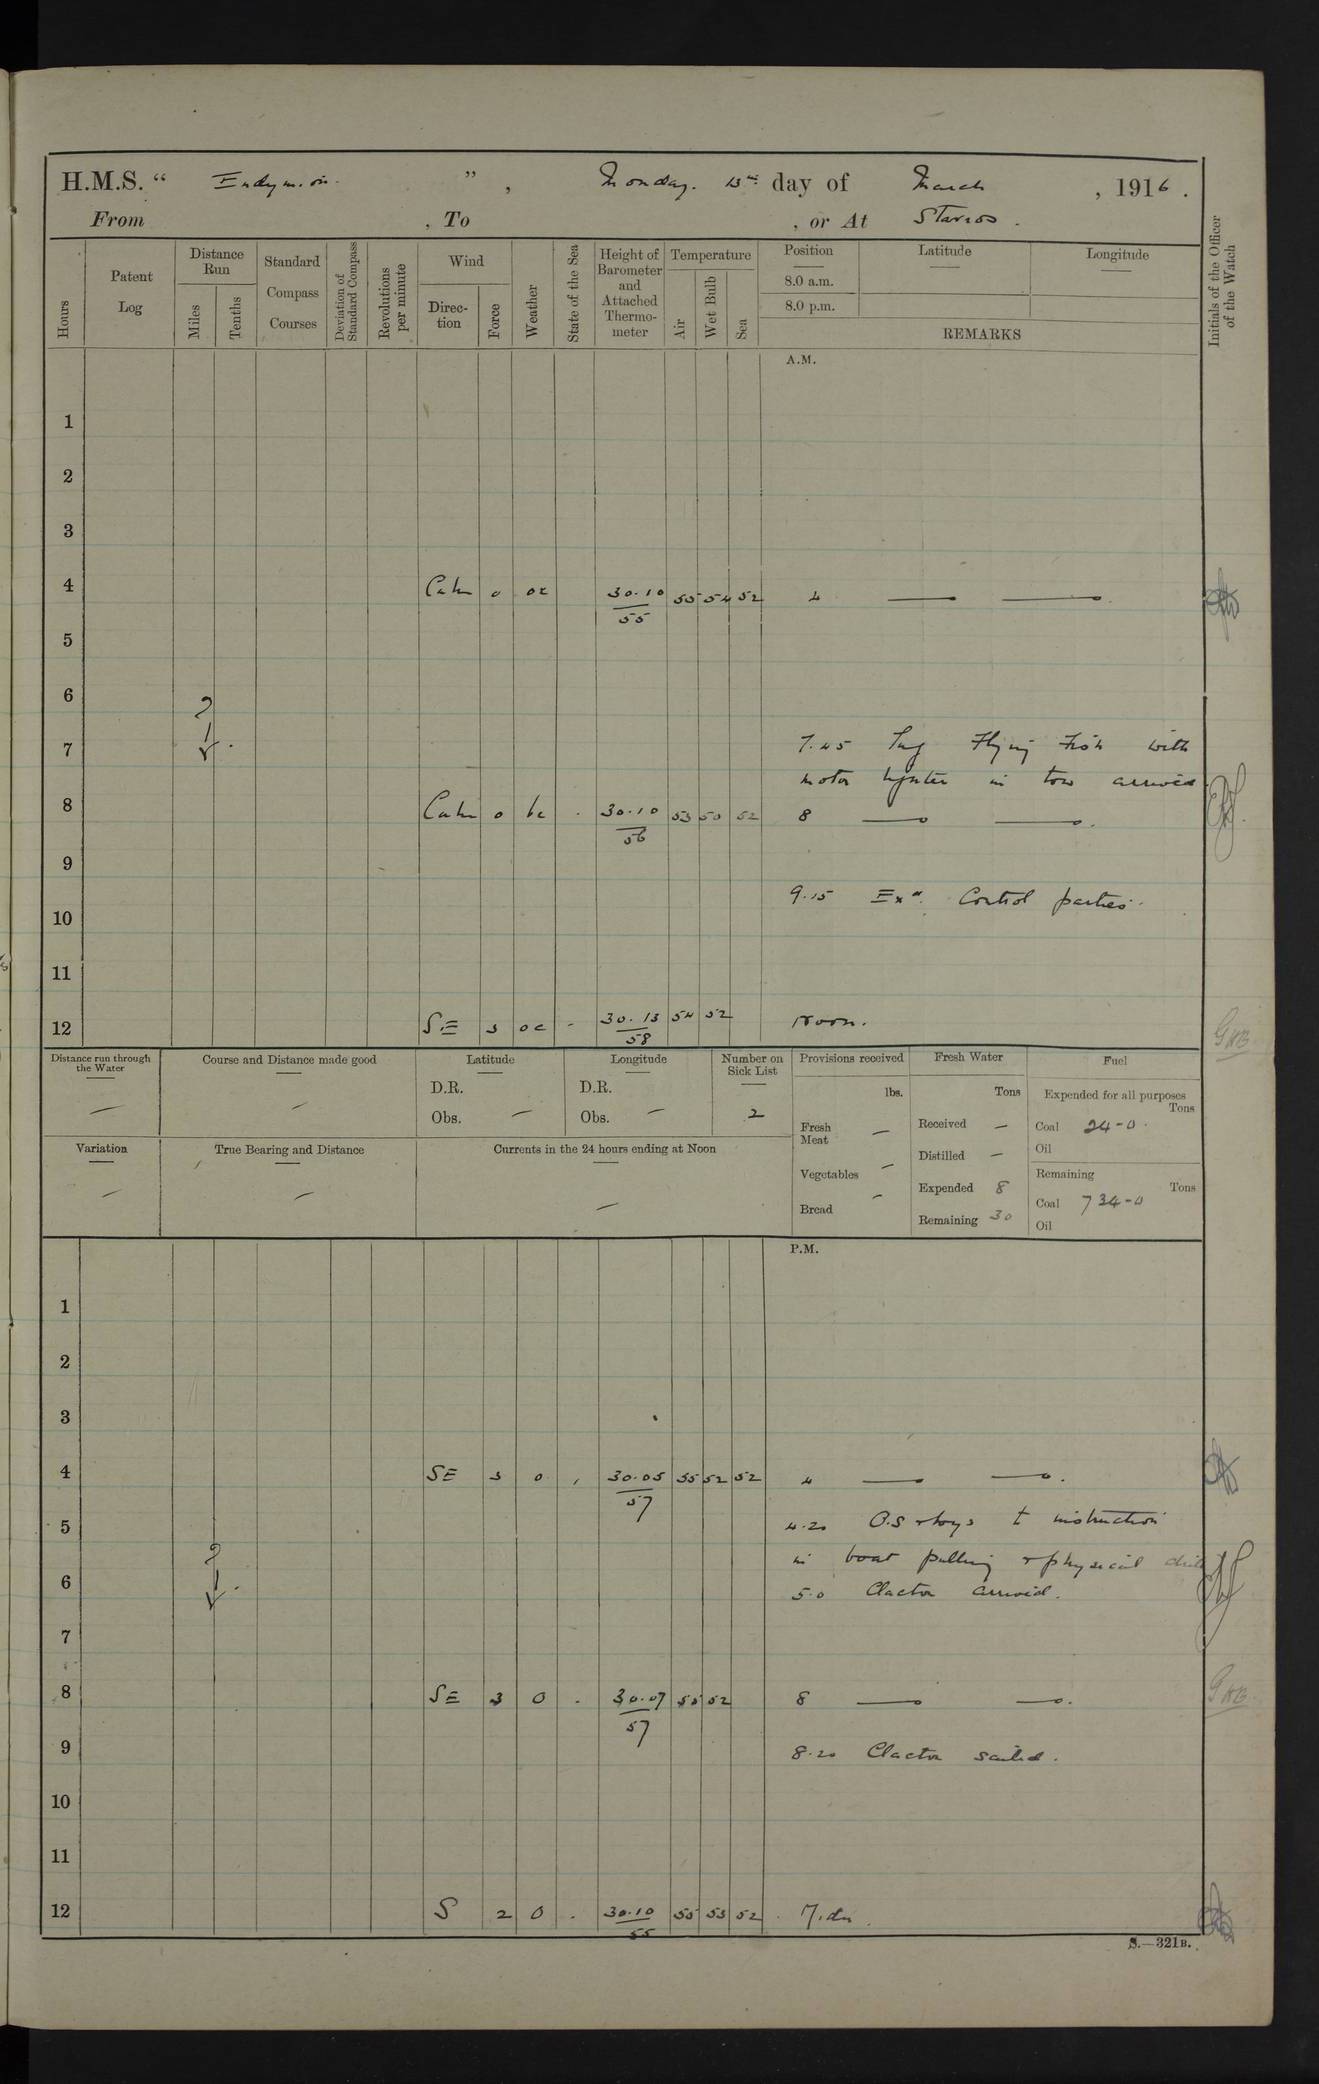 H.M.S. “ Endymion ” , Monday 13th day of March , 1916 .
From , To , or At Stavros .
Hours
Patent Log
Distance Run
Miles
Tenths
Standard Compass Courses
Deviation of Standard Compass
Revolutions per minute
Wind
Direc-tion
Force
Weather
State of the Sea
Height of Barometer and Attached Thermo-meter
Temperature
Air
Wet Bulb
Sea
Position
8.0 a.m.
8.0 p.m.
Latitude
Longitude
REMARKS
Initials of the Officer of the Watch
A.M.
1
2
3
4 Calm 0 oc 30.10 55 55 54 52 4
5
6
7 7.45 Tug Flying Fish with
motor lighter in tow arrived
8 Calm 0 bc 30.10 56 53 50 52 8
9
9.15 Exd. Control parties.
10
11
12 SE 3 oc 30.13 58 54 52 Noon. GHB
Distance run through the Water —
Course and Distance made good —
Latitude
D.R.
Obs. —
Longitude
D.R.
Obs. —
Number on Sick List
2
Variation —
True Bearing and Distance —
Currents in the 24 hours ending at Noon —
Provisions received
lbs.
Fresh Meat —
Vegetables —
Bread —
Fresh Water
Tons
Received —
Distilled —
Expended 8
Remaining 30
Fuel
Expended for all purposes
Tons
Coal 24-0
Oil
Remaining
Tons
Coal 734-0
Oil
P.M.
1
2
3
4 SE 3 o 30.05 57 55 52 52 4
5 4.20 O.S & boys to instruction
in boat pulling & physical drill
6 5.0 Clacton arrived.
7
8 SE 3 o 30.07 57 55 52 8 GHB
9 8.20 Clacton sailed.
10
11
12 S 2 o 30.10 55 55 53 52 Midn.
S.—321B.